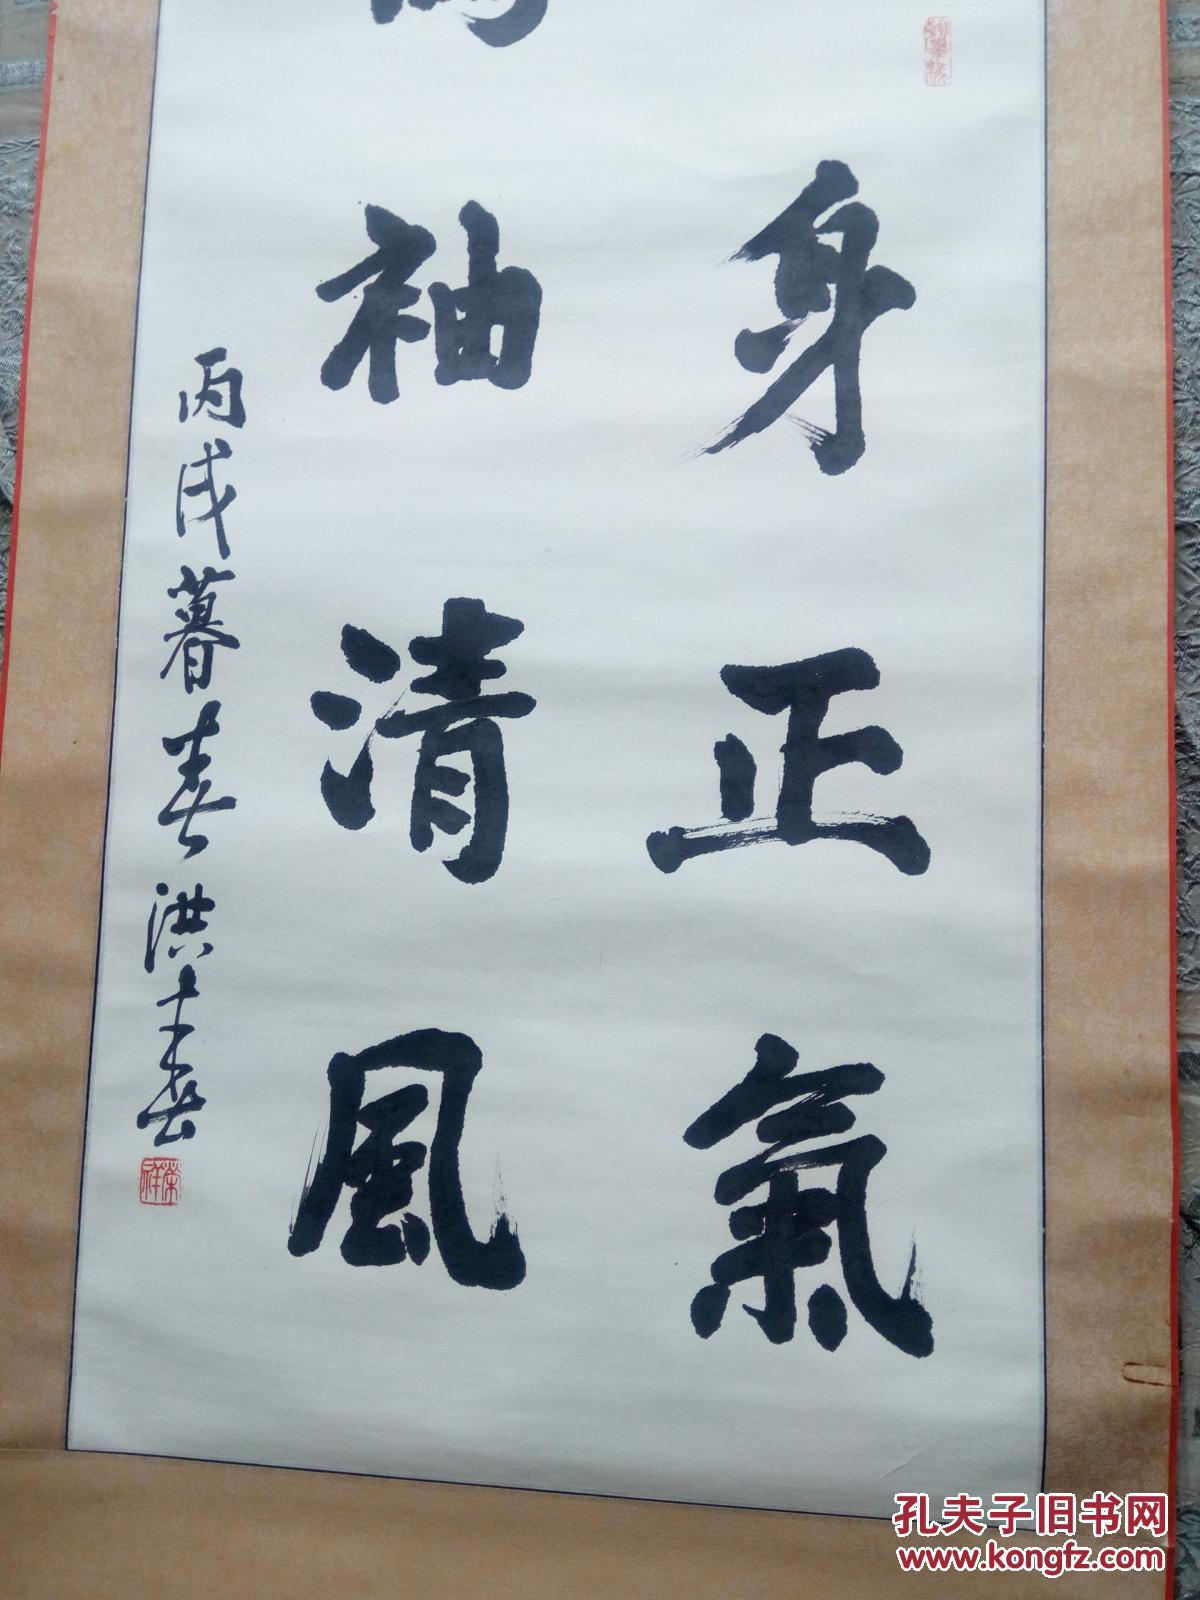 身正氣
袖清風
丙戌暮春洪春
孔夫子旧书网
www.kongfz.com